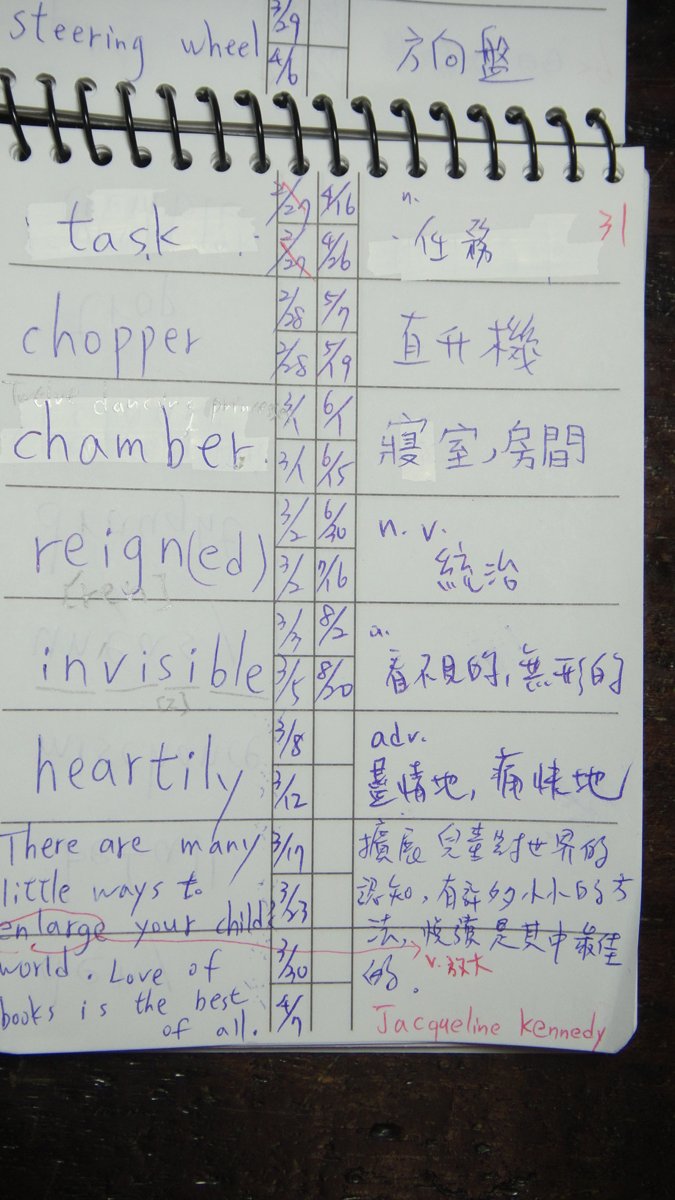 steering wheel 3/29 方向盤
4/6
31
task 2/27 4/16 n. 任務
2/27 4/26
chopper 2/28 5/7 直升機
2/28 5/19
dancing princess
chamber 3/1 6/1 寢室,房間
3/1 6/15
reign(ed) 3/2 6/30 n. v. 統治
3/2 7/16
[ren]
invisible 3/3 8/2 a. 看不見的,無形的
3/5 8/20
[z]
heartily 3/8 adv.
3/12 盡情地,痛快地
There are many 3/17 擴展兒童對世界的
little ways to 3/23 認知,有許多小小的方
enlarge your child's 法,悅讀是其中最佳
world. Love of 3/30 的. v. 放大
books is the best 4/7
of all. Jacqueline Kennedy